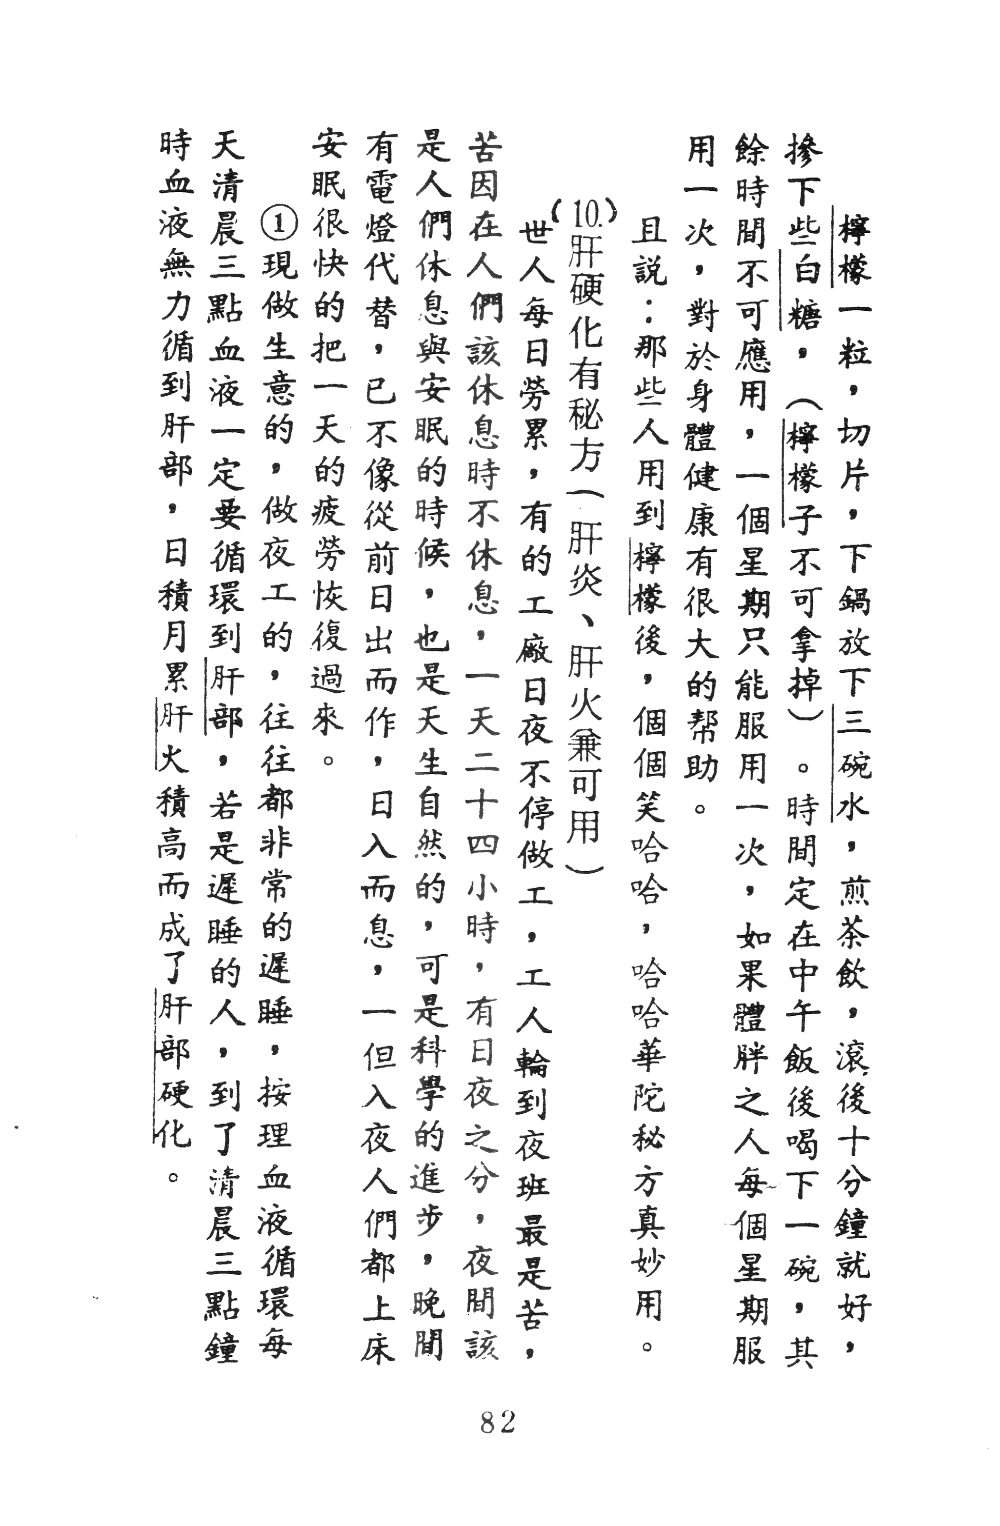 檸檬一粒，切片，下鍋放下三碗水，煎茶飲，滾後十分鐘就好，
摻下些白糖，（檸檬子不可拿掉）。時間定在中午飯後喝下一碗，其
餘時間不可應用，一個星期只能服用一次，如果體胖之人每一個星期服
用一次，對於身體健康有很大的幫助。
且説：那些人用到檸檬後，個個笑哈哈，哈哈華陀秘方真妙用。
(10.)肝硬化有秘方（肝炎、肝火兼可用）
世人每日勞累，有的工廠日夜不停做工，工人輪到夜班最是苦，
苦因在人們該休息時不休息，一天二十四小時，有日夜之分，夜間該
是人們休息與安眠的時候，也是天生自然的，可是科學的進步，晚間
有電燈代替，已不像從前日出而作，日入而息，一但入夜人們都上床
安眠很快的把一天的疲勞恢復過來。
①現做生意的，做夜工的，往往都非常的遲睡，按理血液循環每
天清晨三點血液一定要循環到肝部，若是遲睡的人，到了清晨三點鐘
時血液無力循到肝部，日積月累肝火積高而成了肝部硬化。
82